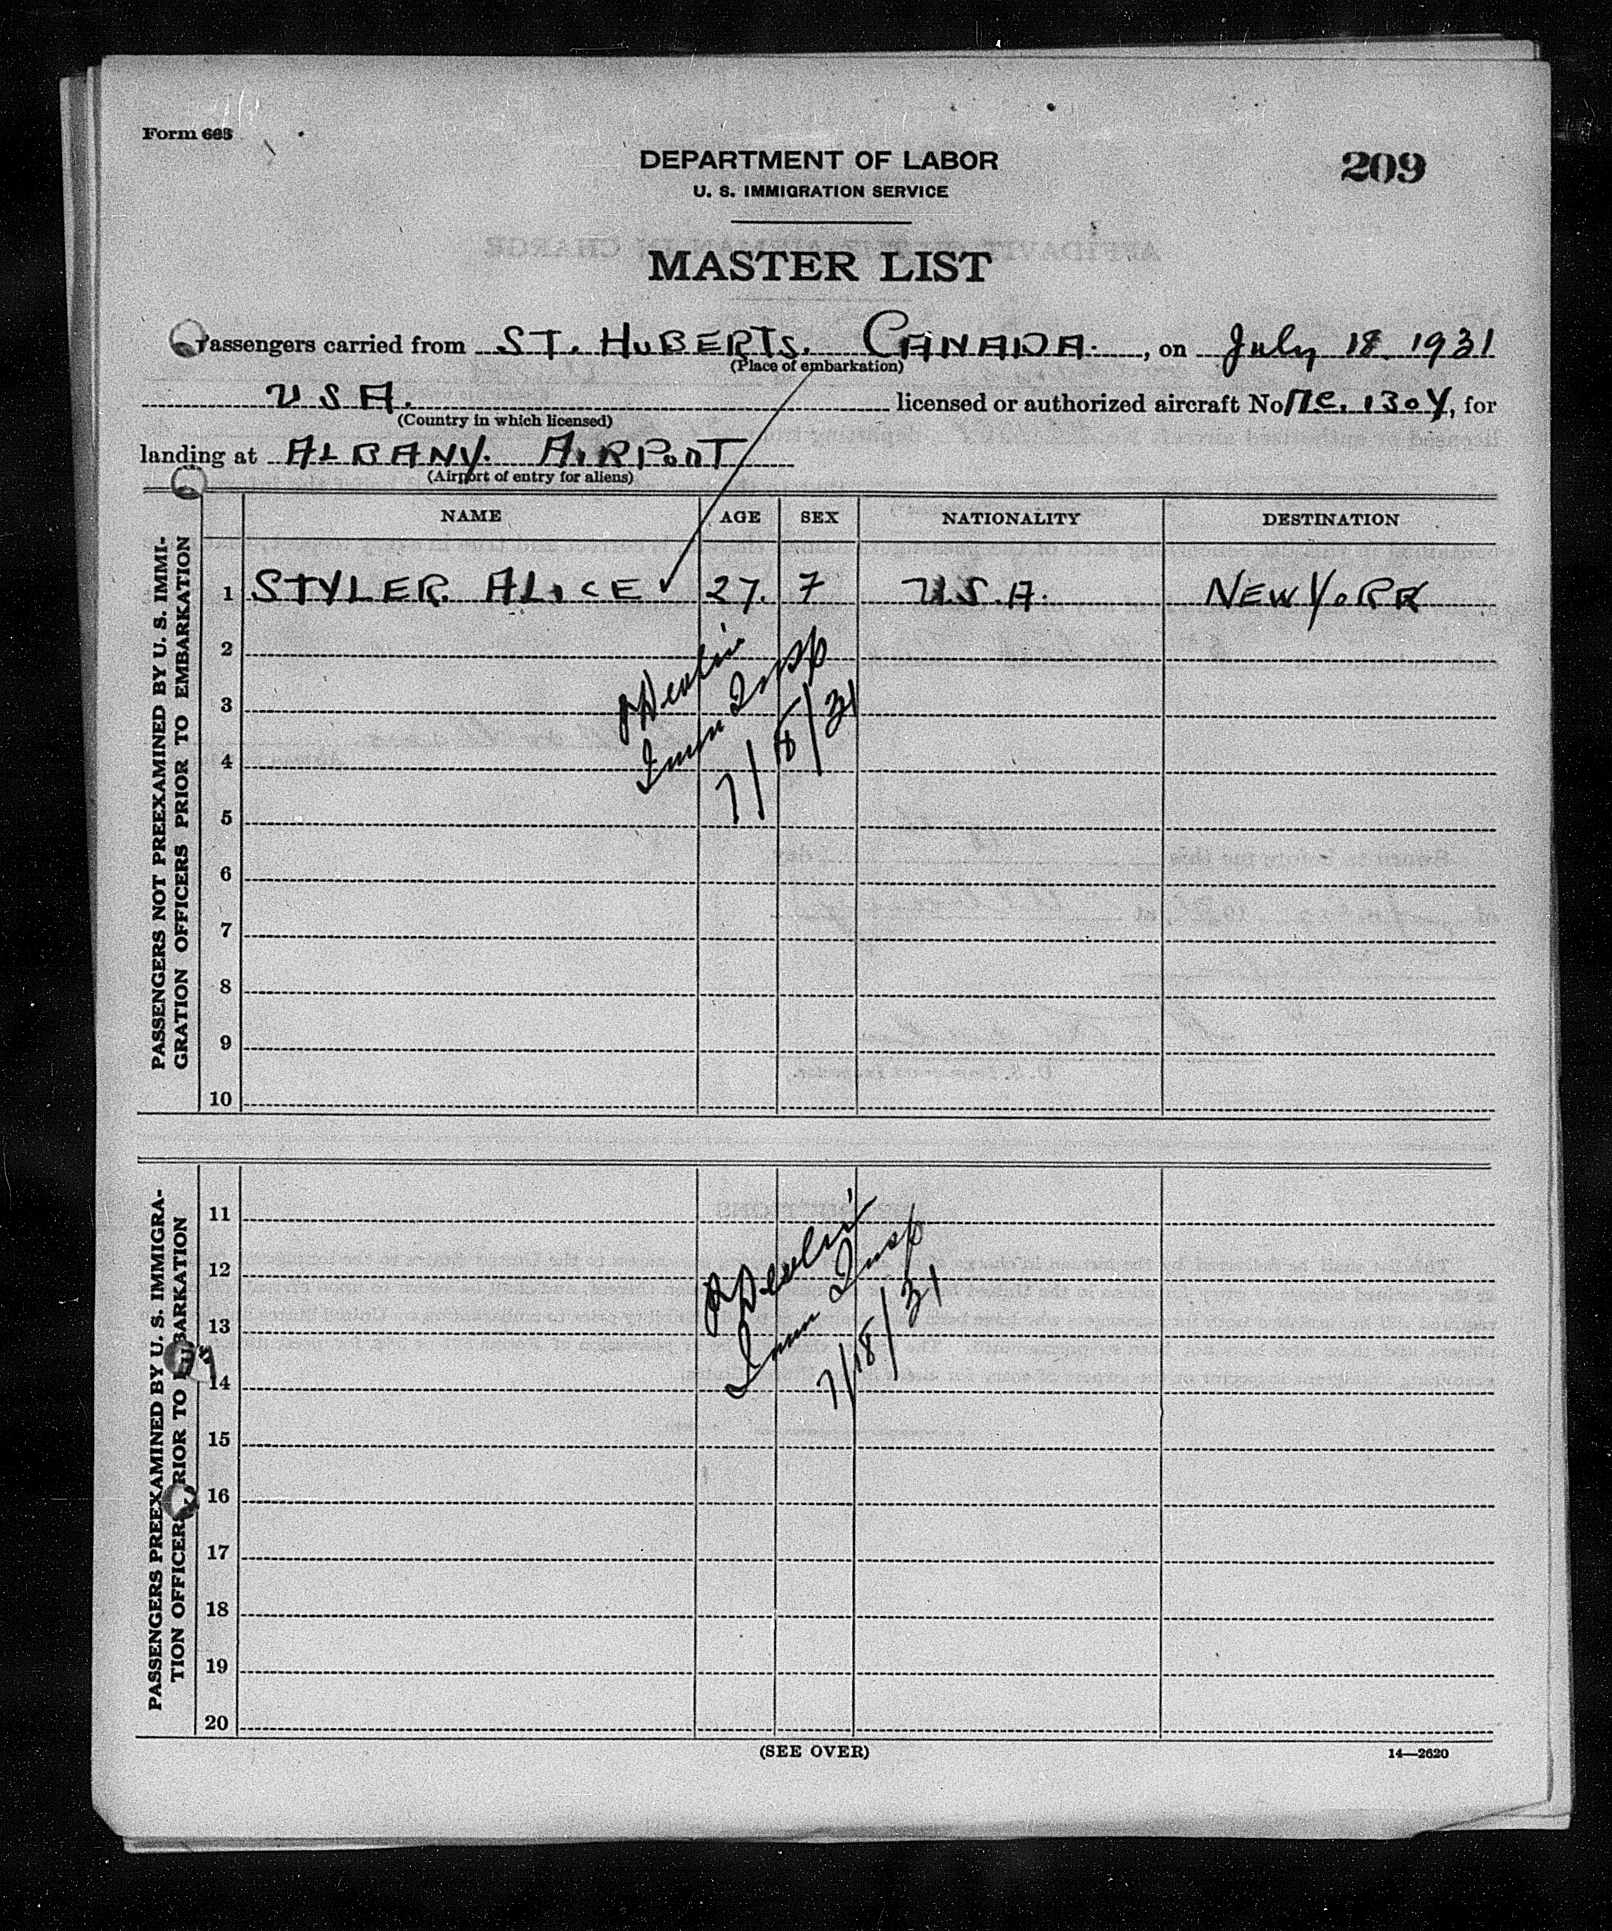 Form 665
209
DEPARTMENT OF LABOR
U. S. IMMIGRATION SERVICE
MASTER LIST
Passengers carried from ST. HUBERTS. CANADA. , on July 18. 1931
(Place of embarkation)
U S A. licensed or authorized aircraft No. NC. 130Y, for
(Country in which licensed)
landing at ALBANY. AIRPORT
(Airport of entry for aliens)
NAME AGE SEX NATIONALITY DESTINATION
PASSENGERS NOT PREEXAMINED BY U. S. IMMI-
GRATION OFFICERS PRIOR TO EMBARKATION
1 STYLER. ALICE ✓ 27. F U.S.A. NEW YORK
2
3
4
5
6
7
8
9
10
Devlin
Imm Insp
7/18/31
PASSENGERS PREEXAMINED BY U. S. IMMIGRA-
TION OFFICERS PRIOR TO EMBARKATION
11
12
13
14
15
16
17
18
19
20
Devlin
Imm Insp
7/18/31
(SEE OVER)
14—2620